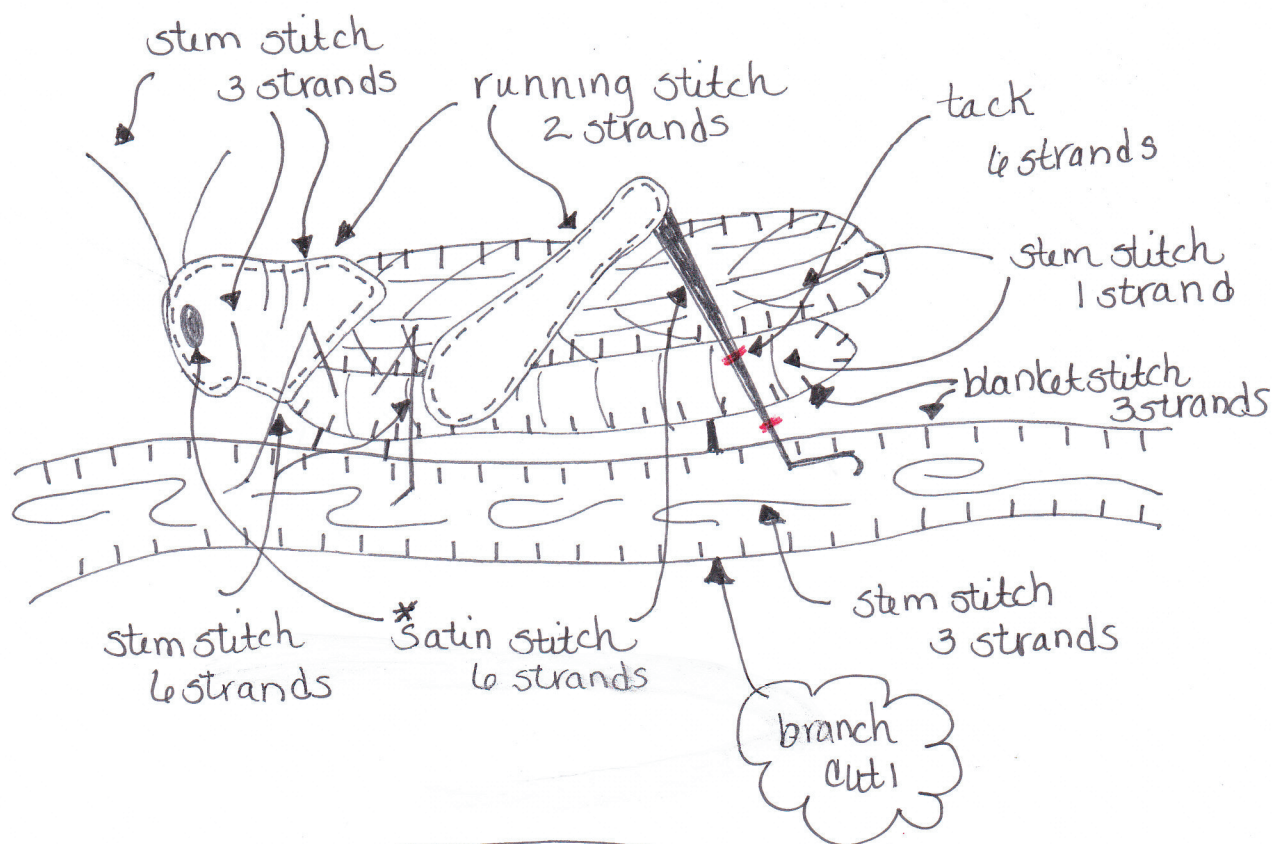 stem stitch
3 strands
running stitch
2 strands
tack
6 strands
stem stitch
1 strand
blanket stitch
3 strands
stem stitch
6 strands
*
satin stitch
6 strands
stem stitch
3 strands
branch
cut 1